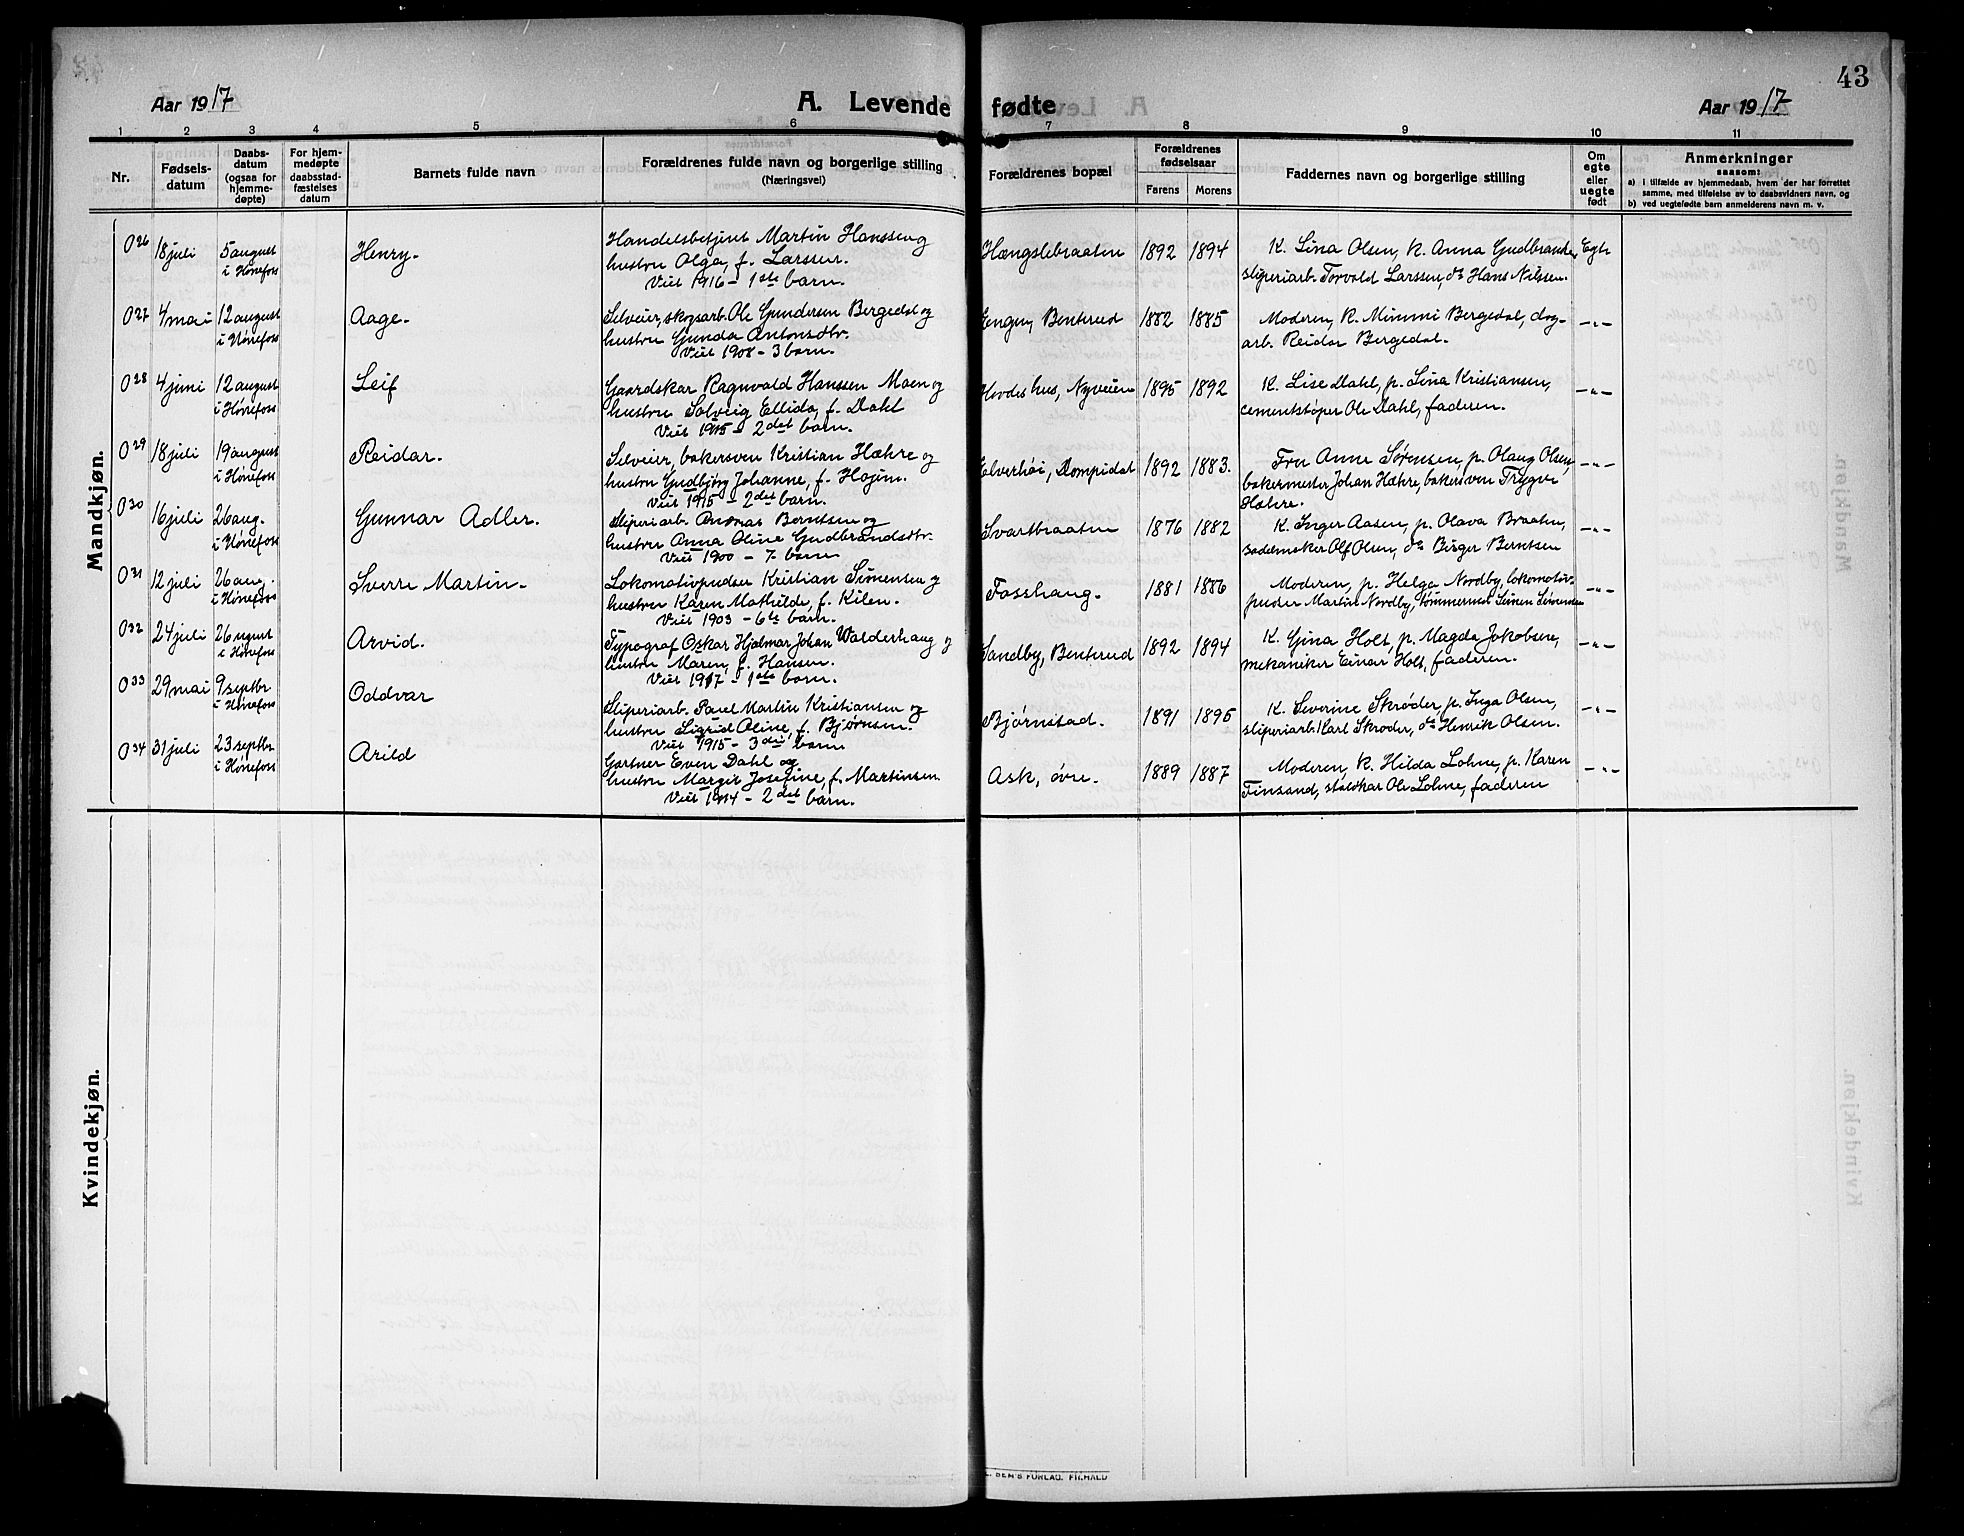 43
Aar 1917
A. Levende fødte
Aar 1917
1 2 3 4 5 6 7 8 9 10 11
Nr.
Fødsels-
datum
Daabs-
datum
(ogsaa for
hjemme-
døpte)
For hjem-
medøpte
daabsstad-
fæstelses
datum
Barnets fulde navn
Forældrenes fulde navn og borgerlige stilling
(Næringsvei)
Forældrenes bopæl
Forældrenes
fødselsaar
Farens
Morens
Faddernes navn og borgerlige stilling
Om
egte
eller
uegte
født
Anmerkninger
saasom:
a) i tilfælde av hjemmedaab, hvem der har forrettet
samme, med tilføielse av to daabsvidners navn, og
b) ved uegtefødte barn anmelderens navn m. v.
Mandkjøn.
O 26
18 juli
5 august
i Hønefoss
Henry.
Handelsbetjent Martin Hanssen og
hustru Olga, f. Larssen.
Viet 1916 - 1ste barn.
Hængslebraaten
1892
1894
K. Lina Olsen, K. Anna Gudbrandsen,
sliperiarb. Torvald Larssen, do Hans Nilssen.
Egte
O 27
4 mai
12 august
i Hønefoss
Aage.
Selveier, skogsarb. Ole Gundersen Bergedal og
hustru Gunda Antonsdtr.
Viet 1908 - 3 barn.
Engen, Benterud
1882
1885
Moderen, K. Mimmi Bergedal, dag-
arb. Reidar Bergedal.
-"-
O 28
4 juni
12 august
i Hønefoss
Leif
Gaardskar Ragnvald Hanssen Moen og
hustru Solveig Ellida, f. Dahl
Viet 1915 - 2det barn.
Hovdes hus, Nyveien
1895
1892
K. Lise Dahl, p. Lina Kristiansen,
cementstøper Ole Dahl, faderen.
-"-
O 29
18 juli
19 august
i Hønefoss
Reidar.
Selveier, bakersven Kristian Hæhre og
hustru Gudbjørg Johanne, f. Hojem.
Viet 1915 - 2det barn.
Elverhøi, Dompidal
1892
1883.
Fru Anne Sørensen, p. Olaug Olsen,
bakermester Johan Hæhre, bakersven Trygve
Hæhre.
-"-
O 30
16 juli
26 aug.
i Hønefoss
Gunnar Adler.
Sliperiarb. Berntsen og
hustru Anna Oline Gudbrandsdtr.
Viet 1900 - 7 barn
Svartbraaten
1876
1882
K. Inger Aasen, p. Olava Braaten,
sadelmaker Olf Olsen, do Birger Berntsen
-"-
O 31
12 juli
26 aug.
i Hønefoss
Sverre Martin.
Lokomotivpudser Kristian Simensen og
hustru Karen Mathilde, f. Kilen.
Viet 1903 - 6te barn.
Fosshaug.
1881
1886
Moderen, p. Helga Nordby, lokomotiv-
pudser Martin Nordby, tømmermand Simen Simensen
-"-
O 32
24 juli
26 august
i Hønefoss
Arvid.
Typograf Oskar Hjalmar Johan Walderhaug og
hustru Maren, f. Hansen.
Viet 1917 - 1ste barn.
Sandby, Benterud
1892
1894
K. Gina Holt, p. Magda Jakobsen,
mekaniker Einar Holt, faderen.
-"-
O 33
29 mai
9 septbr
i Hønefoss
Oddvar
Sliperiarb. Paul Martin Kristiansen og
hustru Sigrid Oline, f. Bjørnsen.
Viet 1915 - 3die barn
Bjørnstad.
1891
1895
K. Severine Skrøder, p. Inga Olsen,
sliperiarb. Karl Skrøder, do Henrik Olsen.
-"-
O 34
31 juli
23 septbr
i Hønefoss
Arild
Gartner Even Dahl og
hustru Margit Josefine, f. Martinsen
Viet 1914 - 2det barn.
Ask, øvre.
1889
1887
Moderen, K. Hilda Lohne, p. Karen
Finsand, staldkar Ole Lohne, faderen
-"-
Kvindekjøn.